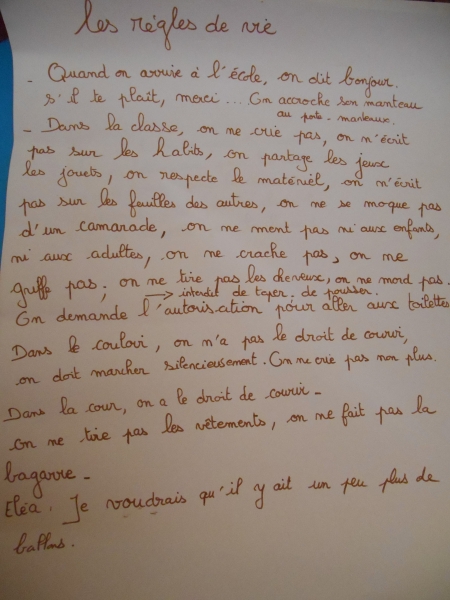 les règles de vie
- Quand on arrive à l'école, on dit bonjour.
s'il te plaît, merci... On accroche son manteau
au porte-manteaux.
- Dans la classe, on ne crie pas, on n'écrit
pas sur les habits, on partage les jeux
les jouets, on respecte le matériel, on n'écrit
pas sur les feuilles des autres, on ne se moque pas
d'un camarade, on ne ment pas ni aux enfants,
ni aux adultes, on ne crache pas, on ne
griffe pas, on ne tire pas les cheveux, on ne mord pas.
→ interdit de taper, de pousser.
On demande l'autorisation pour aller aux toilettes
Dans le couloir, on n'a pas le droit de courir,
on doit marcher silencieusement. On ne crie pas non plus.
Dans la cour, on a le droit de courir -
on ne tire pas les vêtements, on ne fait pas la
bagarre -
Eléa. Je voudrais qu'il y ait un peu plus de
ballons.